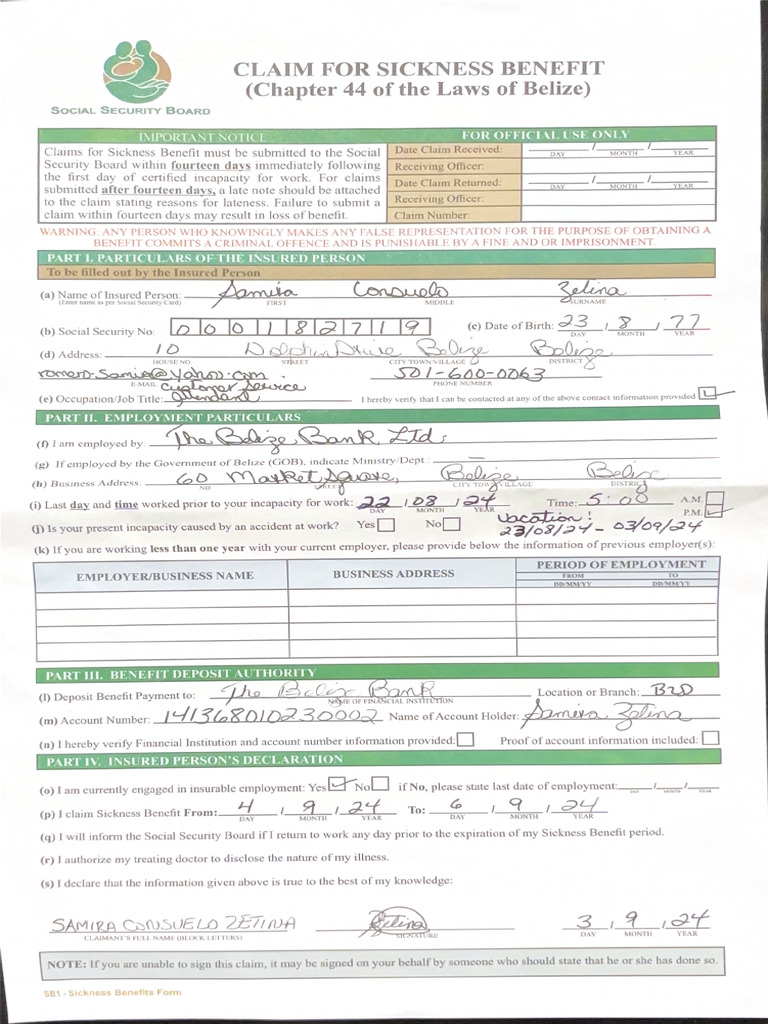 CLAIM FOR SICKNESS BENEFIT
(Chapter 44 of the Laws of Belize)
SOCIAL SECURITY BOARD
IMPORTANT NOTICE
Claims for Sickness Benefit must be submitted to the Social
Security Board within fourteen days immediately following
the first day of certified incapacity for work. For claims
submitted after fourteen days, a late note should be attached
to the claim stating reasons for lateness. Failure to submit a
claim within fourteen days may result in loss of benefit.
FOR OFFICIAL USE ONLY
Date Claim Received: / /
DAY MONTH YEAR
Receiving Officer:
Date Claim Returned: / /
DAY MONTH YEAR
Receiving Officer:
Claim Number:
WARNING: ANY PERSON WHO KNOWINGLY MAKES ANY FALSE REPRESENTATION FOR THE PURPOSE OF OBTAINING A
BENEFIT COMMITS A CRIMINAL OFFENCE AND IS PUNISHABLE BY A FINE AND OR IMPRISONMENT.
PART I. PARTICULARS OF THE INSURED PERSON
To be filled out by the Insured Person
(a) Name of Insured Person: Samira Consuelo Zetina
(Enter name as per Social Security Card) FIRST MIDDLE SURNAME
(b) Social Security No: 000182719 (c) Date of Birth: 23 / 8 / 77
DAY MONTH YEAR
(d) Address: 10 Dolphin Drive Belize Belize
HOUSE NO. STREET CITY/TOWN/VILLAGE DISTRICT
501-600-0063
E-MAIL PHONE NUMBER
Customer Service
(e) Occupation/Job Title: Attendant I hereby verify that I can be contacted at any of the above contact information provided
PART II. EMPLOYMENT PARTICULARS
(f) I am employed by: The Belize Bank Ltd.
(g) If employed by the Government of Belize (GOB), indicate Ministry/Dept.: —
(h) Business Address: 60 Market Square, Belize Belize
NO STREET CITY/TOWN/VILLAGE DISTRICT
(i) Last day and time worked prior to your incapacity for work: 22 / 08 / 24 Time: 5:00 A.M.
DAY MONTH YEAR P.M.
(j) Is your present incapacity caused by an accident at work? Yes No Vacation!
23/08/24 - 03/09/24
(k) If you are working less than one year with your current employer, please provide below the information of previous employer(s):
EMPLOYER/BUSINESS NAME BUSINESS ADDRESS PERIOD OF EMPLOYMENT
FROM TO
DD/MM/YY DD/MM/YY
PART III. BENEFIT DEPOSIT AUTHORITY
(l) Deposit Benefit Payment to: The Belize Bank Location or Branch: BZD
NAME OF FINANCIAL INSTITUTION
(m) Account Number: 141368010230002 Name of Account Holder: Samira Zetina
(n) I hereby verify Financial Institution and account number information provided: Proof of account information included:
PART IV. INSURED PERSON'S DECLARATION
(o) I am currently engaged in insurable employment: Yes No if No, please state last date of employment: / /
DAY MONTH YEAR
(p) I claim Sickness Benefit From: 4 / 9 / 24 To: 6 / 9 / 24
DAY MONTH YEAR DAY MONTH YEAR
(q) I will inform the Social Security Board if I return to work any day prior to the expiration of my Sickness Benefit period.
(r) I authorize my treating doctor to disclose the nature of my illness.
(s) I declare that the information given above is true to the best of my knowledge:
SAMIRA CONSUELO ZETINA Zetina 3 / 9 / 24
CLAIMANT'S FULL NAME (BLOCK LETTERS) SIGNATURE DAY MONTH YEAR
NOTE: If you are unable to sign this claim, it may be signed on your behalf by someone who should state that he or she has done so.
SB1 - Sickness Benefits Form